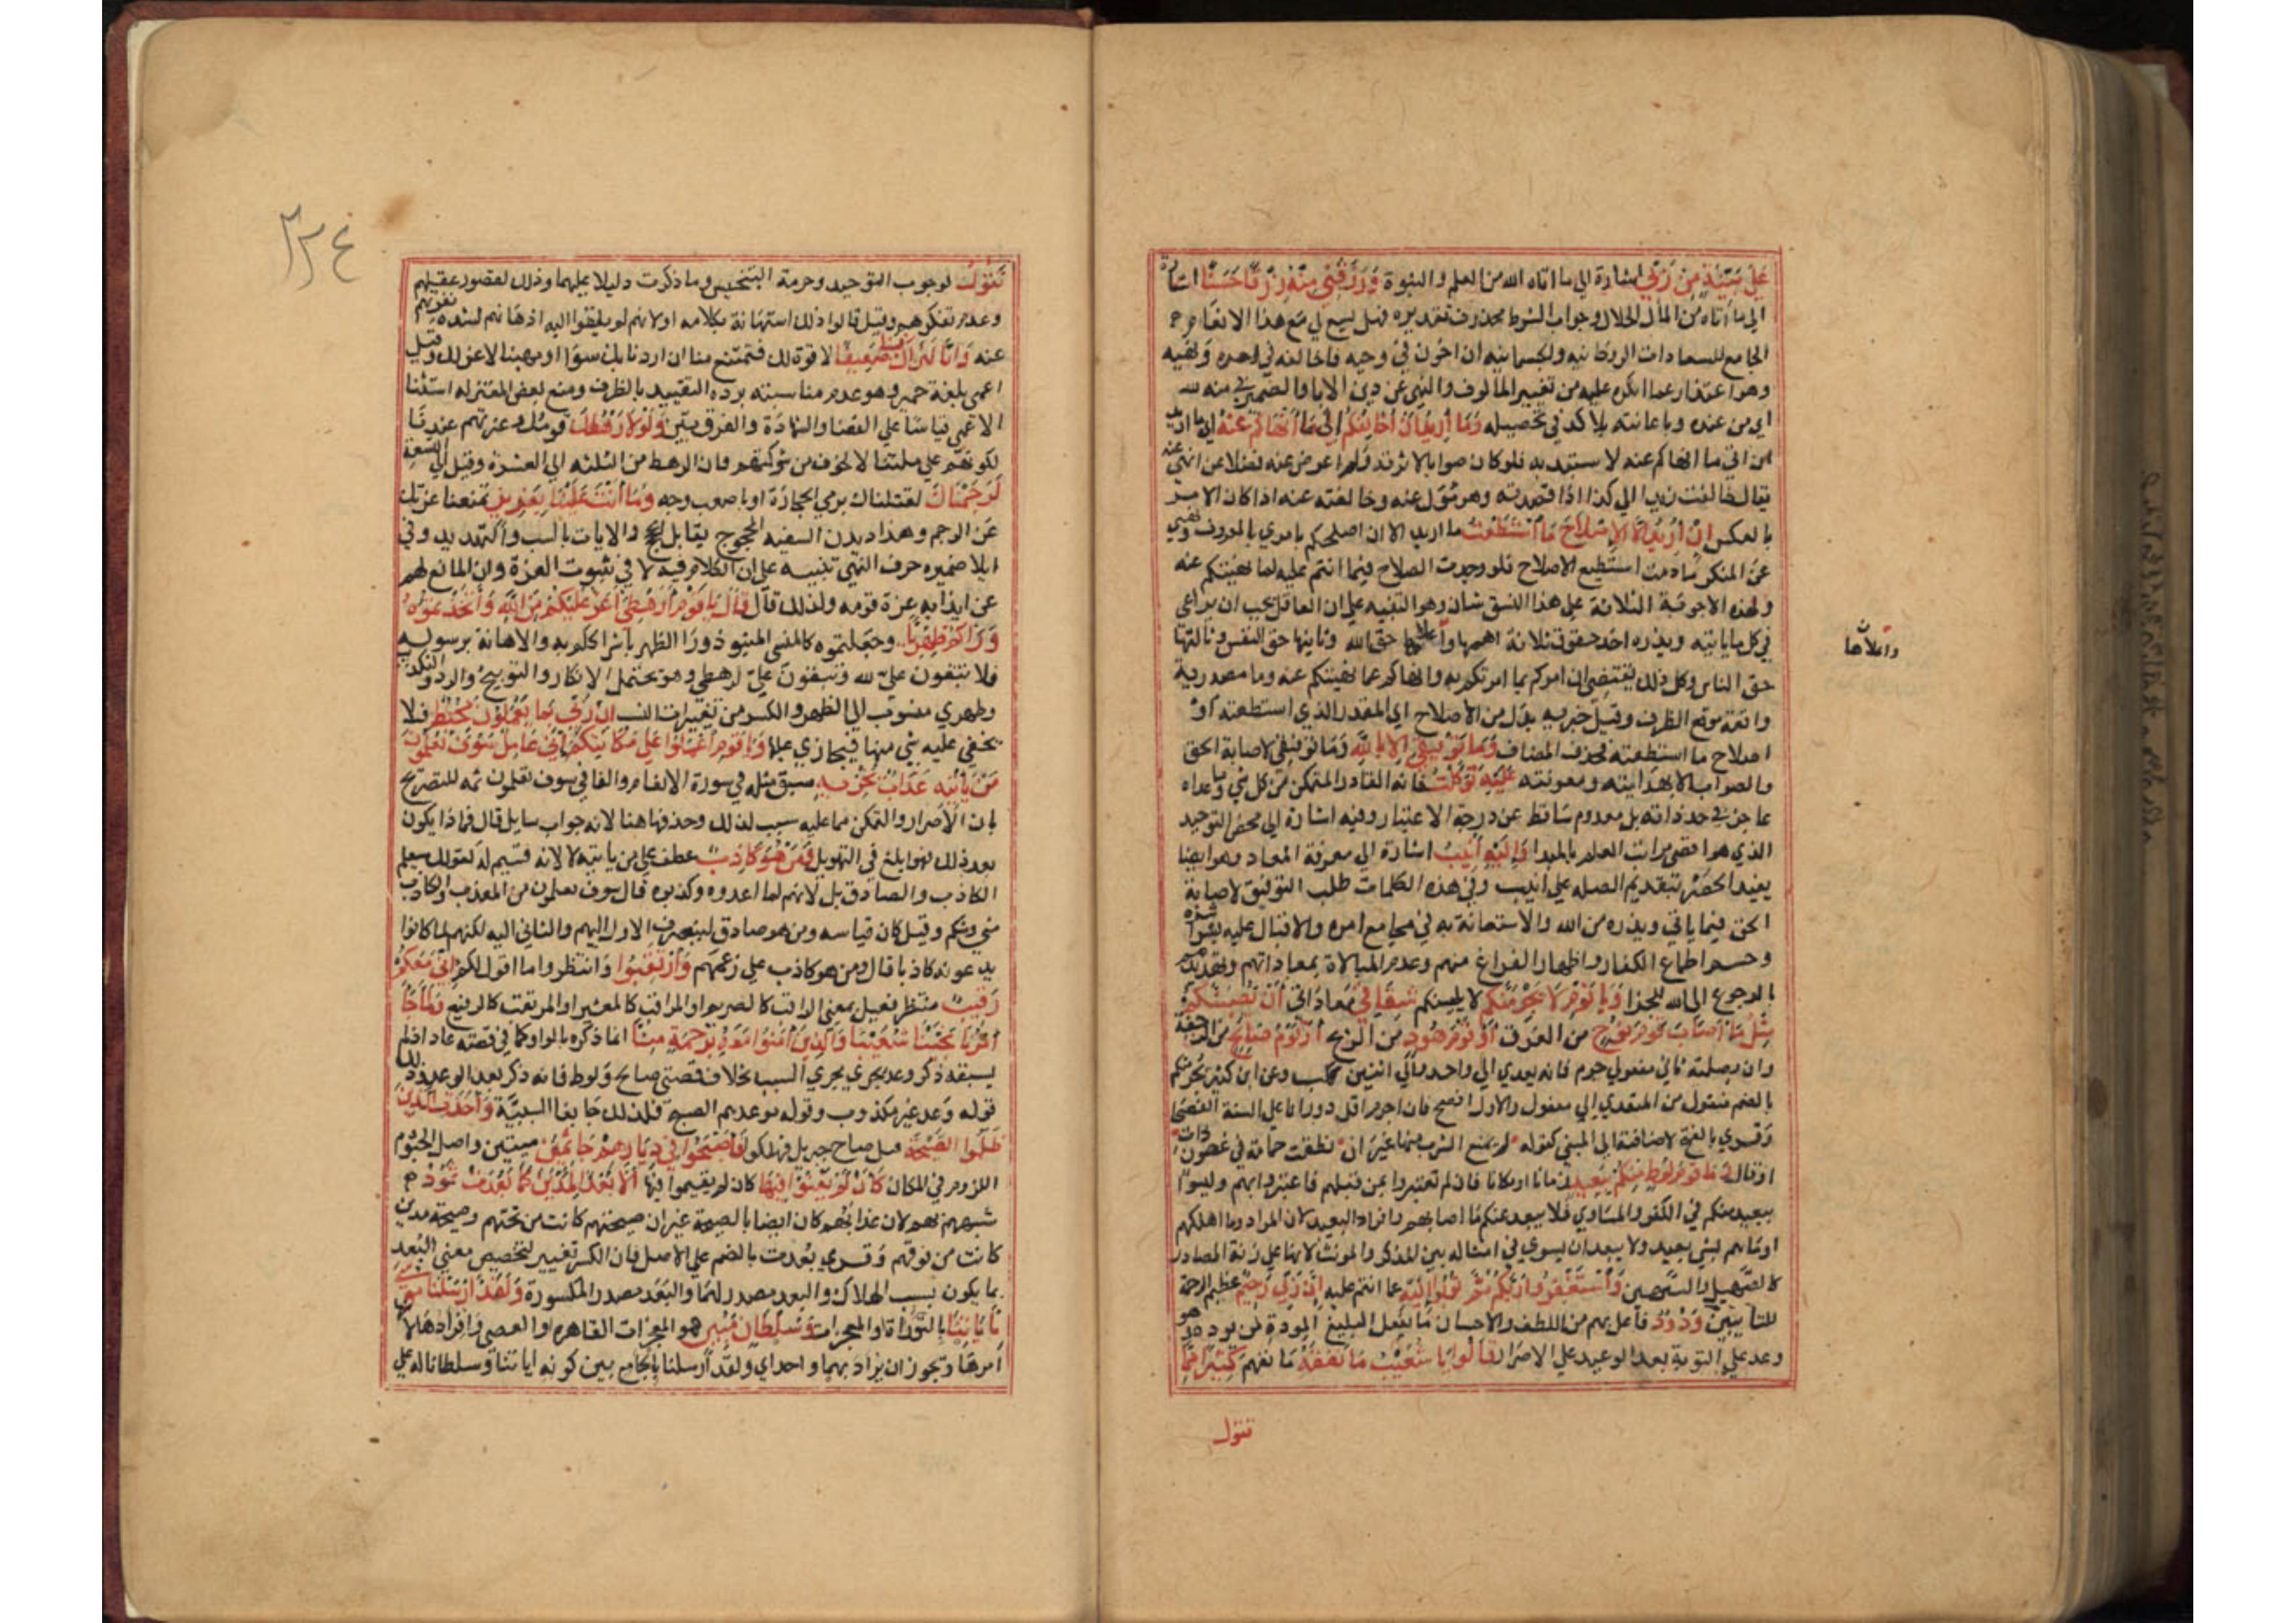 عَلَى بَيِّنَةٍ مِنْ رَبِّي اشارة الى ما اتاه الله من العلم والنبوة وَرَزَقَنِي مِنْهُ رِزْقًا حَسَنًا اشارة
الى ما اتاه من المال الحلال وجواب الشرط محذوف تقديره فهل يسع لي مع هذا الانعام
الجامع للسعادات الروحانيه والجسمانيه ان اخون في وحيه فاخالفه في امره ونهيه
وهو اعتذار عما انكره عليه من تغيير المالوف والنهي عن دين الابا والضمير في منه لله
اي من عنده وباعانته بلا كد في تحصيله وَمَا أُرِيدُ أَنْ أُخَالِفَكُمْ إِلَى مَا أَنْهَاكُمْ عَنْهُ اي ما اريد
ان اتي ما انهاكم عنه لاستبد به فلو كان صوابا لاثرته ولم اعرض عنه فضلا عن انهي عنه
يقال خالفت زيدا الى كذا اذا قصدته وهو مول عنه وخالفته عنه اذا كان الامر
بالعكس إِنْ أُرِيدُ إِلَّا الْإِصْلَاحَ مَا اسْتَطَعْتُ ما اريد الا ان اصلحكم بامري بالمعروف ونهيي
عن المنكر ما دمت استطيع الاصلاح فلو وجدت الصلاح فيما انتم عليه لما نهيتكم عنه
ولهذه الاجوبة الثلاثة على هذا النسق شان وهو التنبيه على ان العاقل يجب ان يراعي
في كل ما ياتيه ويذره احد حقوق ثلاثة اهمها واعلاها حق الله وثانيها حق النفس وثالثها
واعلاها
حق الناس وكل ذلك يقتضي ان امركم بما امرتكم به وانهاكم عما نهيتكم عنه وما مصدرية
واقعة موقع الظرف وقيل خبرية بدل من الاصلاح اي المقدار الذي استطعته او
اصلاح ما استطعته فحذف المضاف وَمَا تَوْفِيقِي إِلَّا بِاللَّهِ وما توفيقي لاصابة الحق
والصواب الا بهدايته ومعونته عَلَيْهِ تَوَكَّلْتُ فانه القادر المتمكن من كل شي وما عداه
عاجز في حد ذاته بل معدوم ساقط عن درجة الاعتبار وفيه اشارة الى محض التوحيد
الذي هو اقصى مراتب العلم بالمبدا وَإِلَيْهِ أُنِيبُ اشارة الى معرفة المعاد وهو ايضا
يفيد الحصر بتقديم الصله على انيب وفي هذه الكلمات طلب التوفيق لاصابة
الحق فيما ياتي ويذره من الله والاستعانة به في مجامع امره والاقبال عليه بشراشره
وحسم اطماع الكفار واظهار الفراغ منهم وعدم المبالاة بمعاداتهم وتهديدهم
بالرجوع الى الله للجزا وَيَا قَوْمِ لَا يَجْرِمَنَّكُمْ لا يكسبنكم شِقَاقِي معاداتي أَنْ يُصِيبَكُمْ
مِثْلُ مَا أَصَابَ قَوْمَ نُوحٍ من الغرق أَوْ قَوْمَ هُودٍ من الريح أَوْ قَوْمَ صَالِحٍ من الرجفة
وان بصلته ثاني مفعولي جرم فانه يعدي الى واحد والى اثنين ككسب وعن ابن كثير يجرمنكم
بالضم منقول من المتعدي الى مفعول والاول افصح فان اجرم اقل دورانا على السنة الفصحا
وقري بالفتح لاضافته الى المبني كقوله لم يمنع الشرب منها غير ان نطقت حمامة في غصون ذات
اوقال وَمَا قَوْمُ لُوطٍ مِنْكُمْ بِبَعِيدٍ زمانا او مكانا فان لم تعتبروا بمن قبلهم فاعتبروا بهم وليسوا
ببعيد منكم في الكفر والمساوي فلا يبعد عنكم ما اصابهم وافراد البعيد لان المراد وما اهلكهم
او ما هم بشي بعيد ولا يبعد ان يسوي في امثاله بين المذكر والمونث لانها على زنة المصادر
كالصهيل والشهيق وَاسْتَغْفِرُوا رَبَّكُمْ ثُمَّ تُوبُوا إِلَيْهِ عما انتم عليه إِنَّ رَبِّي رَحِيمٌ عظيم الرحمة
للتايبين وَدُودٌ فاعل بهم من اللطف والاحسان ما يفعل البليغ المودة لمن يوده وهو
وعد على التوبة بعد الوعيد على الاصرار قَالُوا يَا شُعَيْبُ مَا نَفْقَهُ ما نفهم كَثِيرًا مِمَّا
تقول
٢٢٤
تَقُولُ لوجوب التوحيد وحرمة البخس وما ذكرت دليلا عليهما وذلك لقصور عقلهم
وعدم تفكرهم وقيل قالوا ذلك استهانة بكلامه او لانهم لم يلقوا اليه اذهانهم لشدة نفرتهم
عنه وَإِنَّا لَنَرَاكَ فِينَا ضَعِيفًا لا قوة لك فتمتنع منا ان اردنا بك سوا او مهينا لا عز لك وقيل
اعمى بلغة حمير وهو عدم مناسبته يرده التقييد بالظرف ومنع بعض المعتزله استنبا
الاعمى قياسا على القضا والشهادة والفرق بين وَلَوْلَا رَهْطُكَ قومك وعزتهم عندنا
لكونهم على ملتنا لا لخوف من شوكتهم فان الرهط من الثلثه الى العشرة وقيل الى التسعة
لَرَجَمْنَاكَ لقتلناك برمي الحجارة او باصعب وجه وَمَا أَنْتَ عَلَيْنَا بِعَزِيزٍ فتمنعنا عزتك
عن الرجم وهذا ديدن السفيه المحجوج يقابل الحجج والايات بالسب والتهديد وفي
ايلا ضميره حرف النفي تنبيه على ان الكلام فيه لا في ثبوت العزة وان المانع لهم
عن ايذايه عزة قومه ولذلك قال قَالَ يَا قَوْمِ أَرَهْطِي أَعَزُّ عَلَيْكُمْ مِنَ اللَّهِ وَاتَّخَذْتُمُوهُ
وَرَاءَكُمْ ظِهْرِيًّا وجعلتموه كالمنسي المنبوذ ورا الظهر باشراككم به والاهانة برسوله
فلا تبقون علي لله وتبقون علي لرهطي وهو يحتمل الانكار والتوبيخ والرد والتكذيب
وظهري منسوب الى الظهر والكسر من تغييرات النسب إِنَّ رَبِّي بِمَا تَعْمَلُونَ مُحِيطٌ فلا
يخفي عليه شي منها فيجازي عليها وَيَا قَوْمِ اعْمَلُوا عَلَى مَكَانَتِكُمْ إِنِّي عَامِلٌ سَوْفَ تَعْلَمُونَ
مَنْ يَأْتِيهِ عَذَابٌ يُخْزِيهِ سبق مثله في سورة الانعام والفا في سوف تعلمون ثمه للتصريح
بان الاصرار والتمكن مما عليه سبب لذلك وحذفها هنا لانه جواب سايل قال فما ذا يكون
بعد ذلك فهو ابلغ في التهويل وَمَنْ هُوَ كَاذِبٌ عطف على من ياتيه لا لانه قسيم له كقولك ستعلم
الكاذب والصادق بل لانهم لما اوعدوه وكذبوه قال سوف تعلمون من المعذب والكاذب
مني ومنكم وقيل كان قياسه ومن هو صادق لينصرف الاول اليهم والثاني اليه لكنهم لما كانوا
يدعونه كاذبا قال ومن هو كاذب على زعمهم وَارْتَقِبُوا وانتظروا ما اقول لكم إِنِّي مَعَكُمْ
رَقِيبٌ منتظر فعيل بمعنى الراقب كالصريم او المراقب كالعشير او المرتقب كالرفيع وَلَمَّا جَاءَ
أَمْرُنَا نَجَّيْنَا شُعَيْبًا وَالَّذِينَ آمَنُوا مَعَهُ بِرَحْمَةٍ مِنَّا انما ذكره بالواو كما في قصة عاد اذ لم
يسبقه ذكر وعد يجري مجري السبب بخلاف قصتي صالح ولوط فانه ذكر بعد الوعد وذلك
قوله وعد غير مكذوب وقوله موعدهم الصبح فلذلك جا بفا السببية وَأَخَذَتِ الَّذِينَ
ظَلَمُوا الصَّيْحَةُ قيل صاح جبريل فهلكوا فَأَصْبَحُوا فِي دِيَارِهِمْ جَاثِمِينَ ميتين واصل الجثوم
اللزوم في المكان كَأَنْ لَمْ يَغْنَوْا فِيهَا كان لم يقيموا فيها أَلَا بُعْدًا لِمَدْيَنَ كَمَا بَعِدَتْ ثَمُودُ
شبههم بهم لان عذابهم كان ايضا بالصيحة غير ان صيحتهم كانت من تحتهم وصيحة مدين
كانت من فوقهم وقري بعدت بالضم على الاصل فان الكسر تغيير لتخصيص معنى البعد
بما يكون بسبب الهلاك والبعد مصدر لهما والبعد مصدر المكسورة وَلَقَدْ أَرْسَلْنَا مُوسَى
بِآيَاتِنَا بالتوراة او المعجزات وَسُلْطَانٍ مُبِينٍ هو المعجزات القاهرة او العصي وافرادها لان
امرها ويجوز ان يراد بهما واحد اي ولقد ارسلنا بالجامع بين كونه اياتنا وسلطانا له على